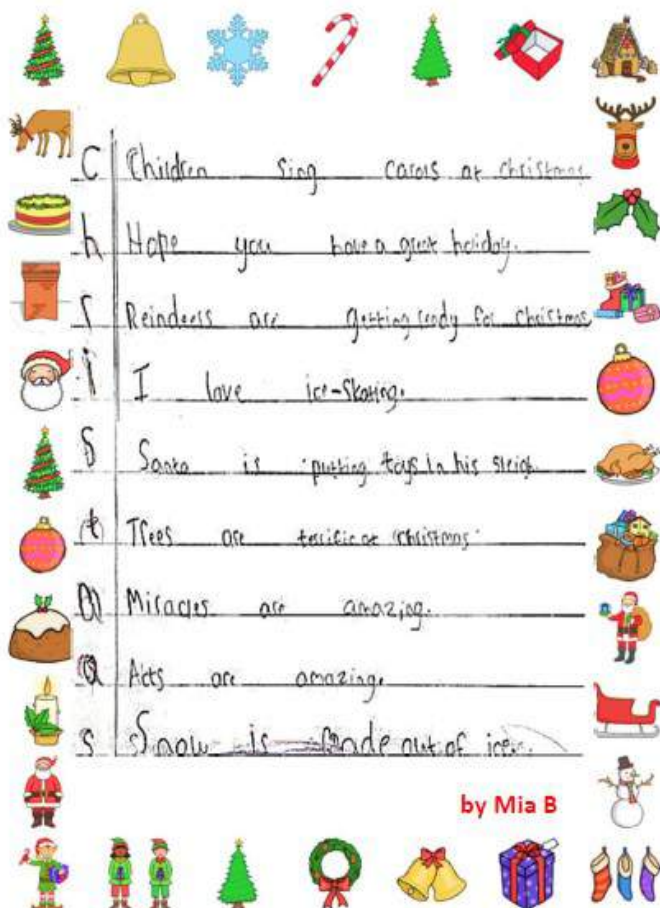 C Children sing carols at christmas
h Hope you have a great holiday.
r Reindeers are getting ready for christmas
i I love ice-skating.
S Santa is putting toys in his sleigh
t Trees are terrific at christmas.
m Miracles are amazing.
a Acts are amazing.
s Snow is made out of ice.
by Mia B